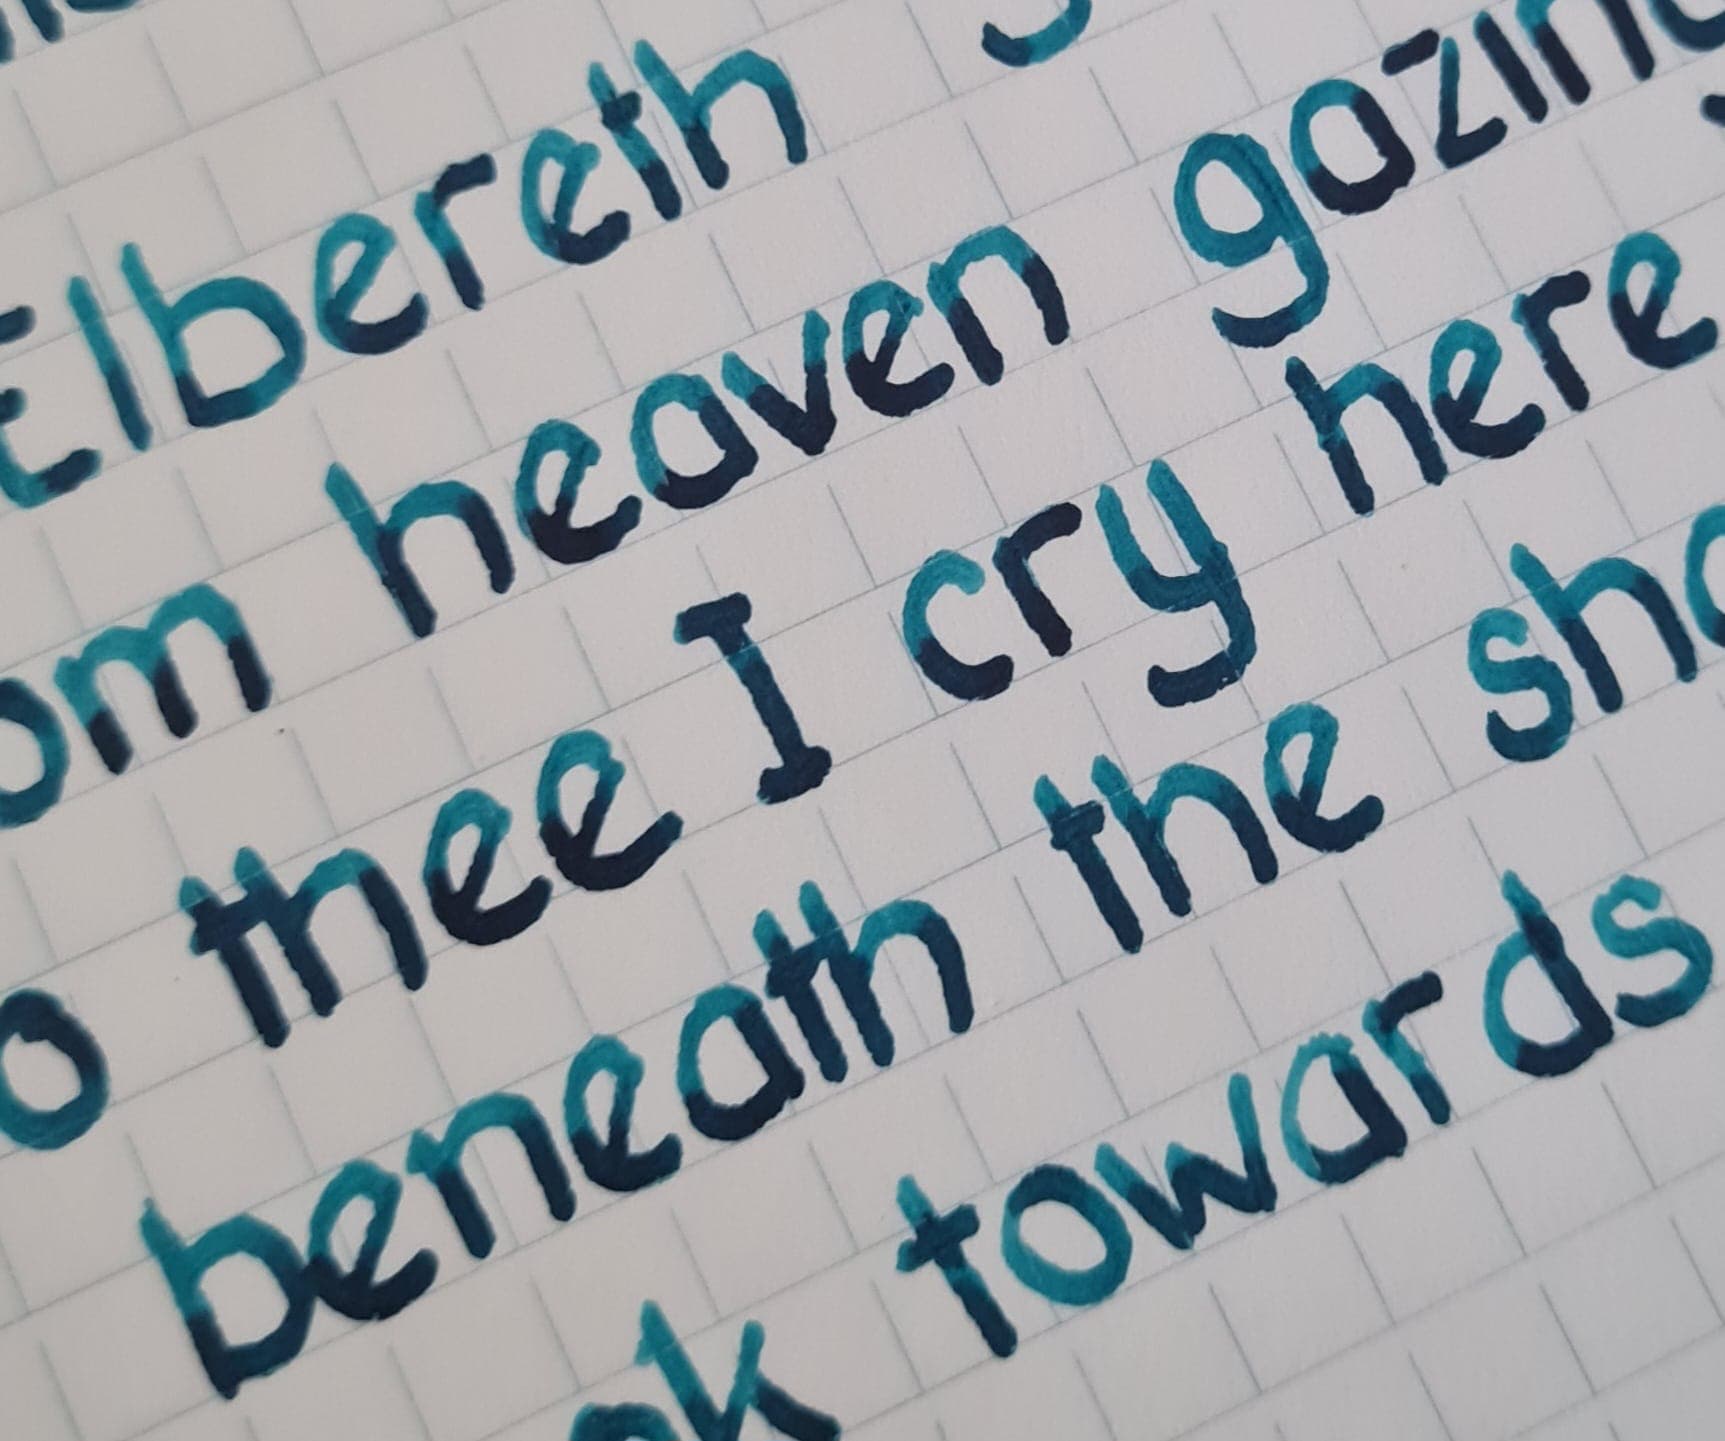 Elbereth
heaven gazing
thee I cry here
beneath the
towards